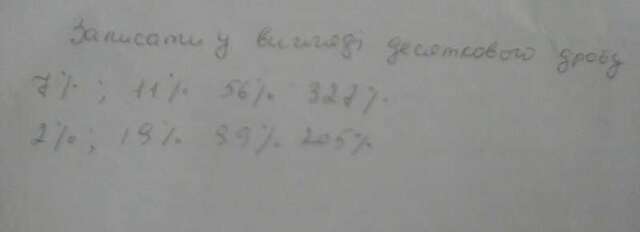 Записати у вигляді десяткового дробу
7% ; 11% 56% 327%
2% ; 19% 89% 205%